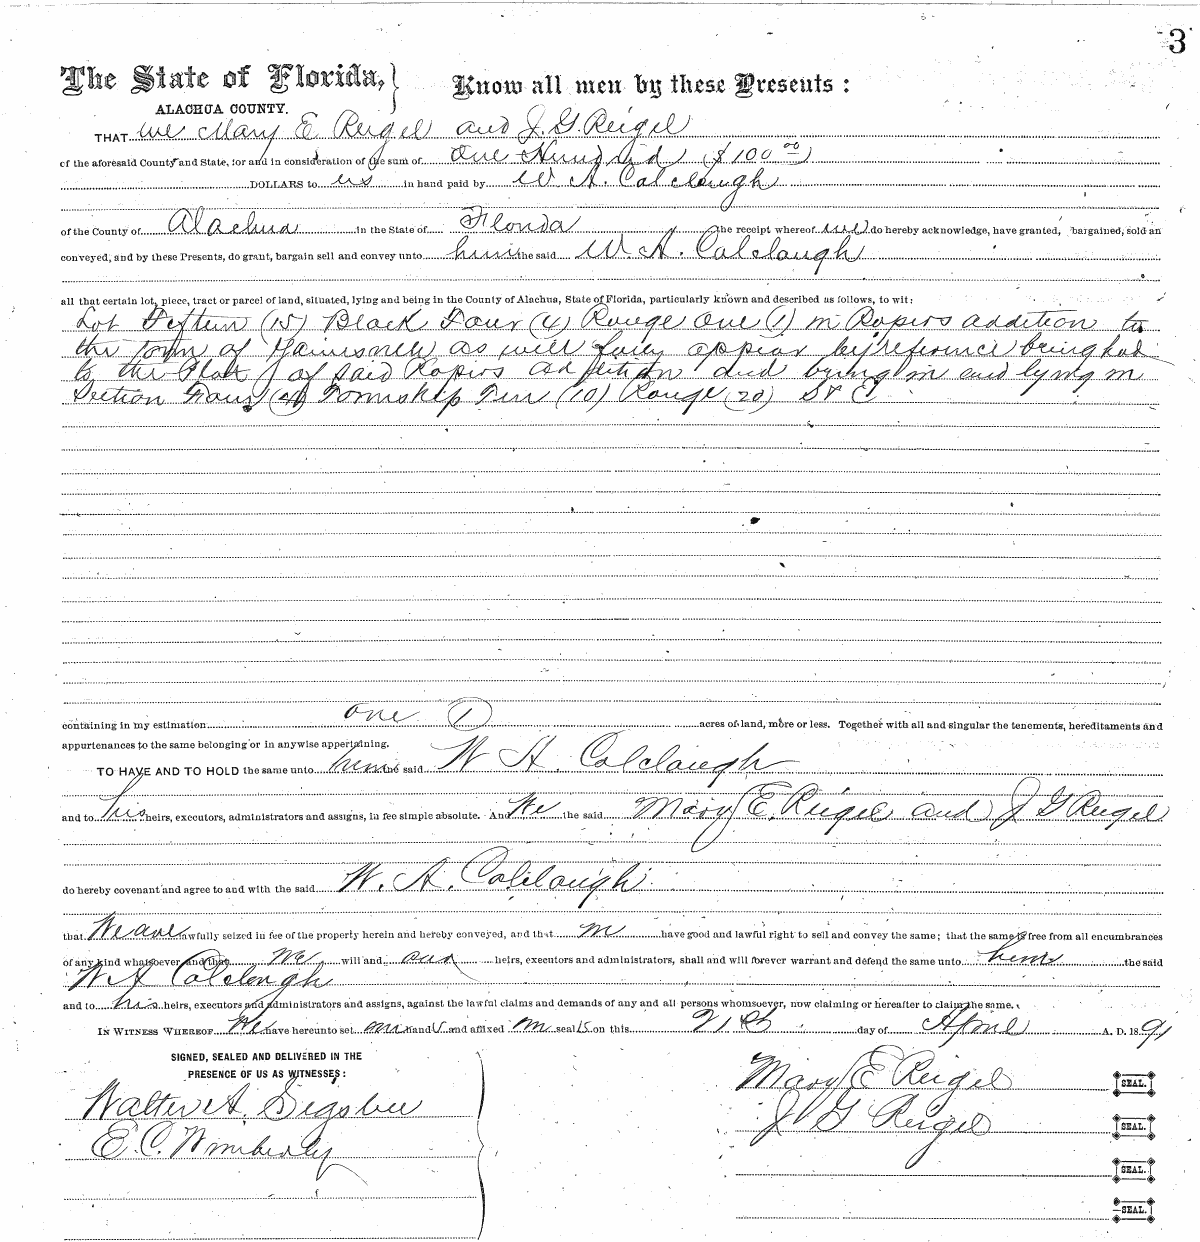 3
The State of Florida, } Know all men by these Presents :
ALACHUA COUNTY.
THAT we Mary E Reigel and J. G. Reigel
of the aforesaid County and State, for and in consideration of the sum of One Hundred ($100 00)
DOLLARS to us in hand paid by W A. Colclough
of the County of Alachua in the State of Florida the receipt whereof we do hereby acknowledge, have granted, bargained, sold an
conveyed, and by these Presents, do grant, bargain sell and convey unto him the said W. A. Colclough
all that certain lot, piece, tract or parcel of land, situated, lying and being in the County of Alachua, State of Florida, particularly known and described as follows, to wit:
Lot Fifteen (15) Block Four (4) Range One (1) in Ropers addition to
the Town of Gainesville as will fully appear by reference being had
to the Plat of said Ropers addition and being in and lying in
Section Four (4) Township Ten (10) Range (20) S & E
containing in my estimation one (1) acres of land, more or less. Together with all and singular the tenements, hereditaments and
appurtenances to the same belonging or in anywise appertaining.
TO HAVE AND TO HOLD the same unto him the said W A. Colclough
and to his heirs, executors, administrators and assigns, in fee simple absolute. And We the said Mary E. Reigel and J G Reigel
do hereby covenant and agree to and with the said W. A. Colclough
that We are lawfully seized in fee of the property herein and hereby conveyed, and that we have good and lawful right to sell and convey the same; that the same is free from all encumbrances
of any kind whatsoever and that we will and our heirs, executors and administrators, shall and will forever warrant and defend the same unto him the said
W A Colclough
and to his heirs, executors and administrators and assigns, against the lawful claims and demands of any and all persons whomsoever, now claiming or hereafter to claim the same.
IN WITNESS WHEREOF We have hereunto set our hands and affixed our seals on this 21st day of April A. D. 1891
SIGNED, SEALED AND DELIVERED IN THE
PRESENCE OF US AS WITNESSES:
Mary E Reigel SEAL.
Walter A. Sigsbee
J G Reigel SEAL.
E. C. Wimberly
SEAL.
SEAL.